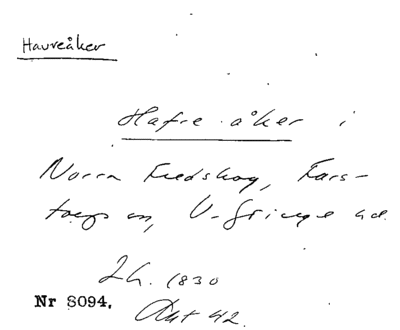 Havreåker
Hafre åker i
Norra Fredskog, Fars-
torps sn, V. Göinge hd.
Lh. 1830
Akt 42.
Nr 8094.